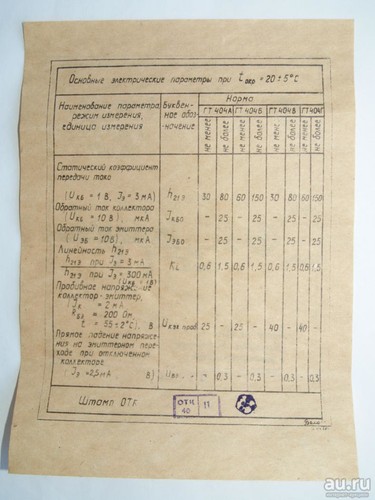 Основные электрические параметры при t окр = 20 ± 5°C
Наименование параметра, режим измерения, единица измерения
Буквенное обозначение
Норма
ГТ 404А ГТ 404Б ГТ 404В ГТ 404Г
не менее не более не менее не более не менее не более не менее не более
Статический коэффициент
передачи тока
(Uкб = 1 В, Jэ = 3 мА) h21э 30 80 60 150 30 80 60 150
Обратный ток коллектора
(Uкб = 10 В), мкА Jкбо - 25 - 25 - 25 - 25
Обратный ток эмиттера
(Uэб = 10 В), мкА Jэбо - 25 - 25 - 25 - 25
Линейность h21э
h21э при Jэ = 3 мА
h21э при Jэ = 300 мА KL 0,6 1,5 0,6 1,5 0,6 1,5 0,6 1,5
(Uкб = 1В)
Пробивное напряжение
коллектор-эмиттер,
(Jк = 2 мА
Rбэ = 200 Ом,
t = 55 ± 2°C), В Uкэк проб 25 - 25 - 40 - 40 -
Прямое падение напряжения
на эмиттерном пере-
ходе при отключенном
коллекторе
Jэ = 2,5 мА В) - 0,3 - 0,3 - 0,3 - 0,3
Штамп ОТК
ОТК
40
11
au.ru